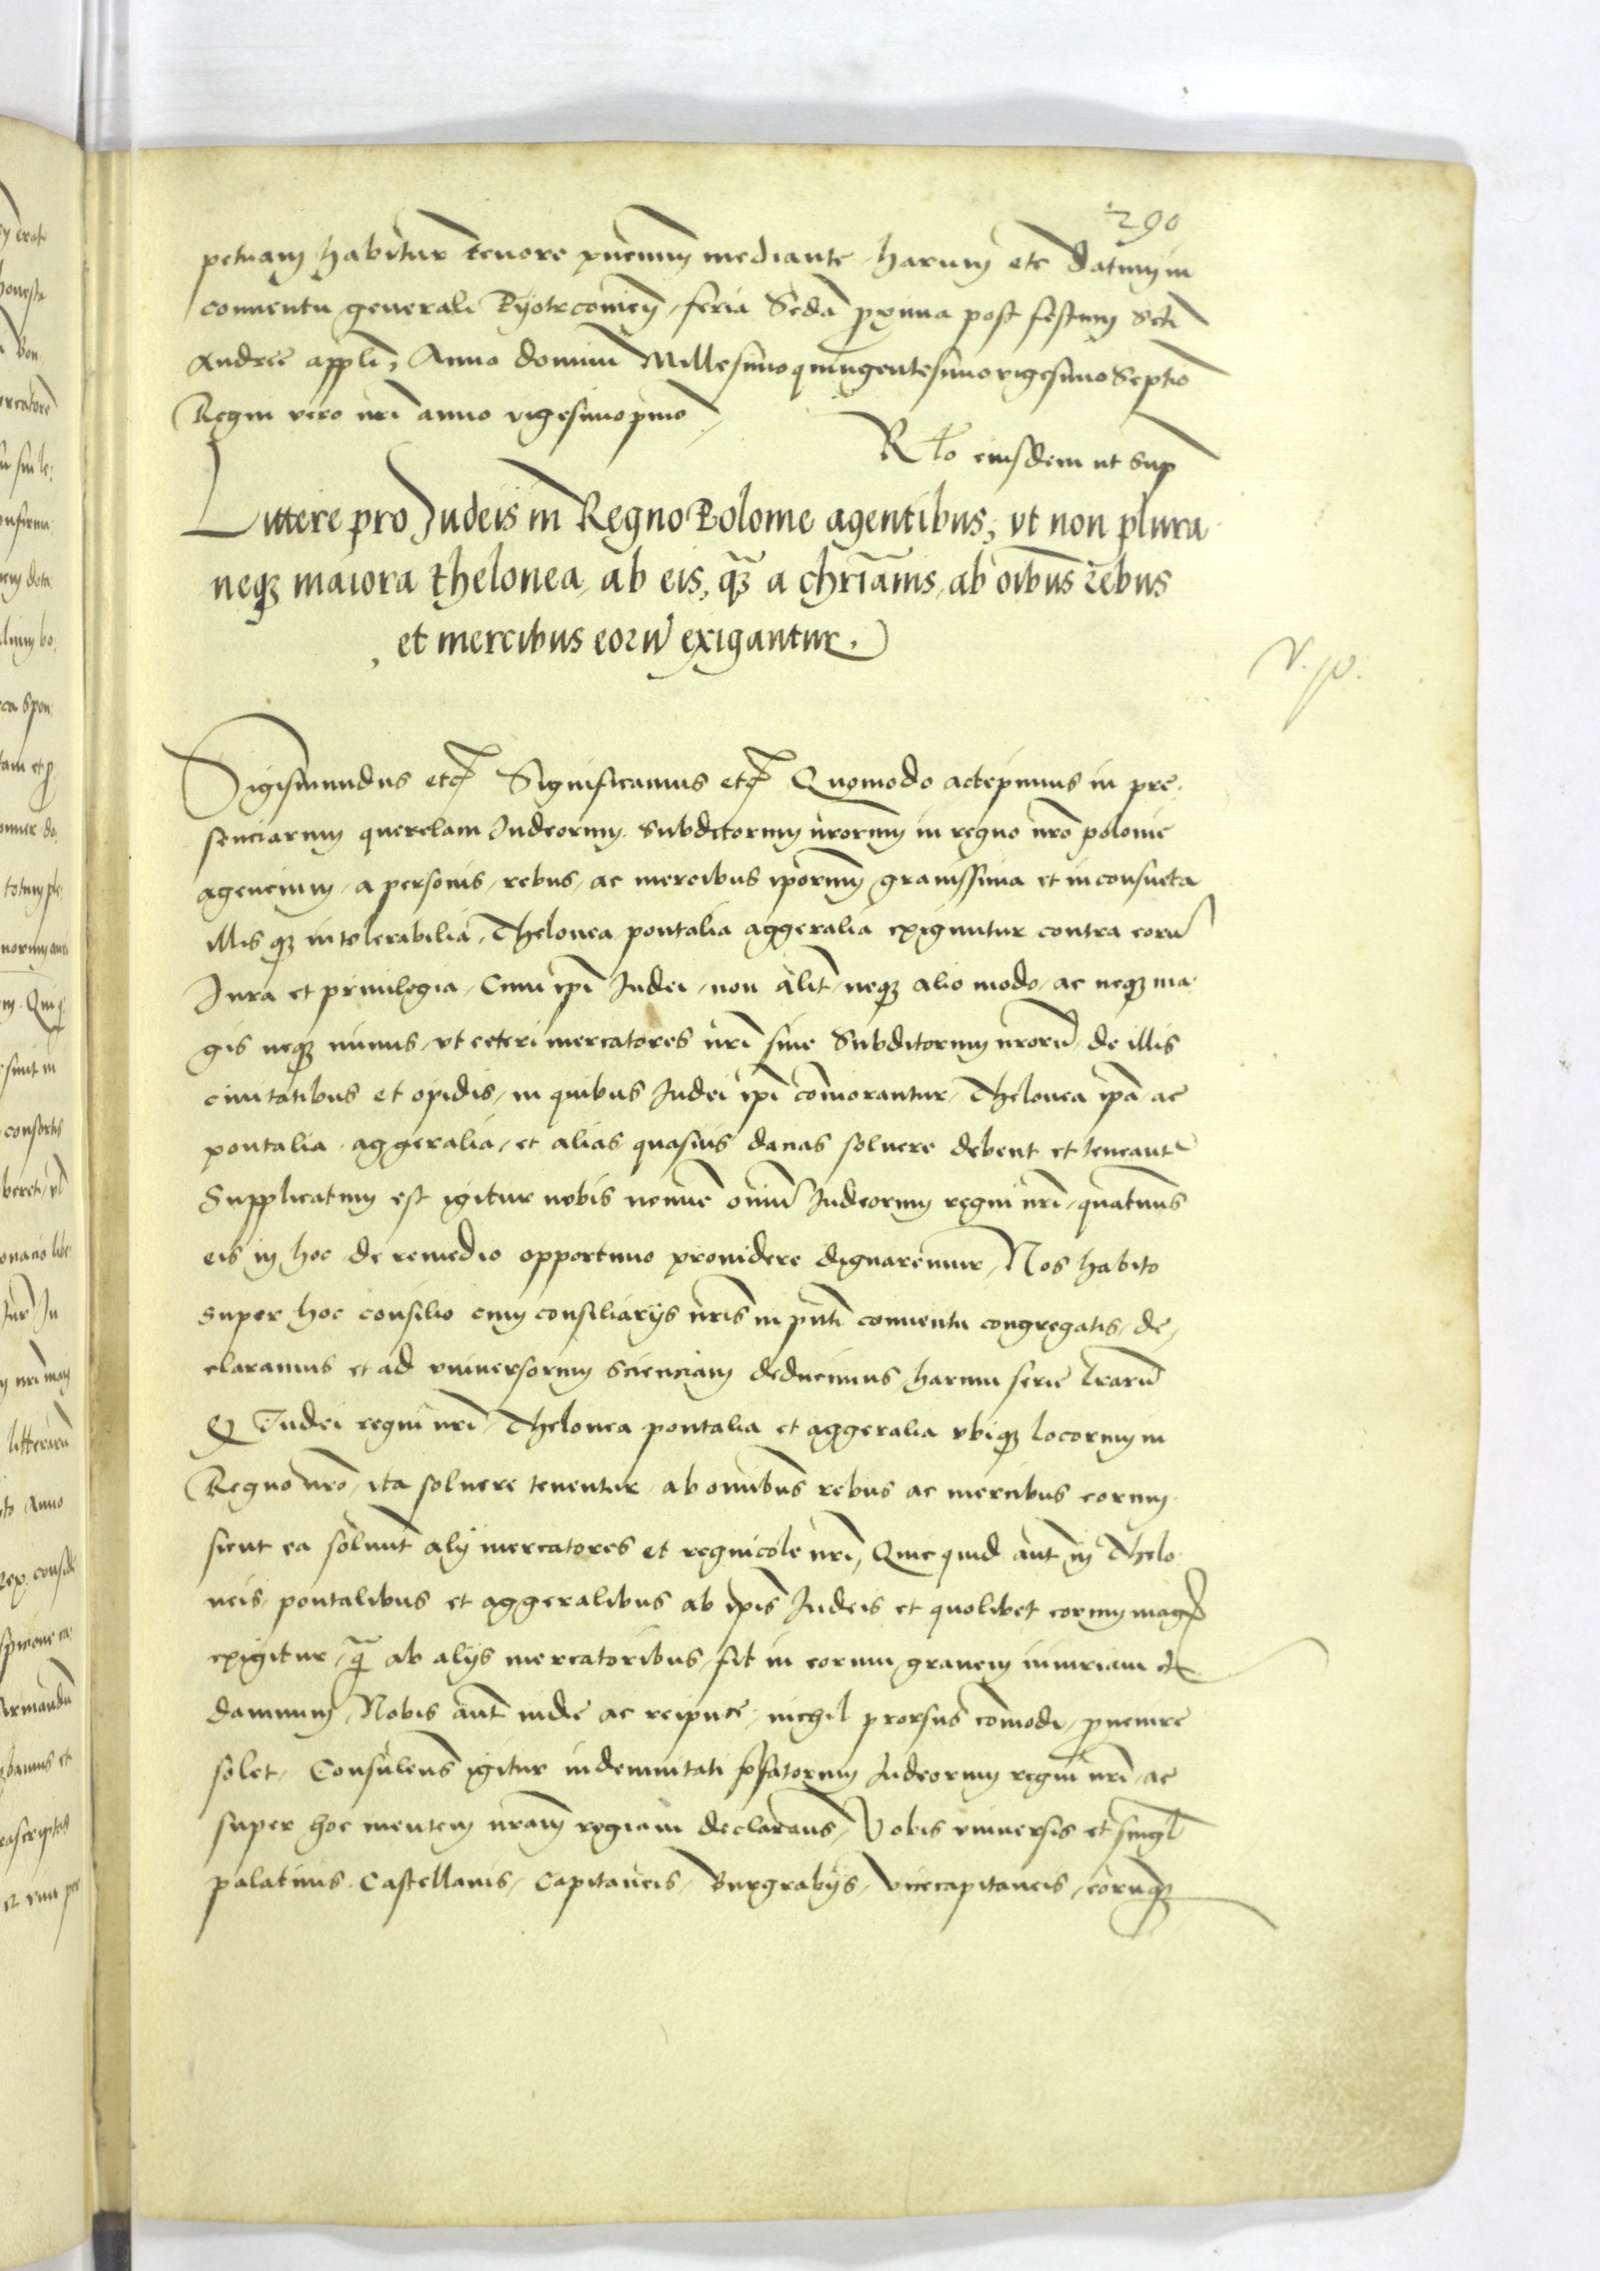 290
petuam habitur tenore pñcium mediante harum etc̃ datum in
conuentu generali Pyotrcouieñ feria Scđa proxima post festum Scti
Andree appli, Anno domini Millesimoquingentesimovigesimo Septĩo
Regni vero nri anno vigesimopmo
Rlo eiusdem ut sup
Littere pro Judeis in Regno Polonie agentibus, vt non plura
neq3 maiora thelonea, ab eis, q̃3 a chrianis, ab oibus rebus
et mercibus eorũ exigantur.
V. pō.
Sigismundus etc̃ Significamus etc̃ Quomodo accepimus in pre
senciarum querelam Judeorum Subditorum nrorum in regno nrõ polonie
agencium, a personis, rebus, ac mercibus ipõrum grauissima et inconsueta
illis q3 intolerabilia, Thelonea pontalia aggeralia exiguntur contra eorũ
Jura et priuilegia, Cum ipi Judei, non alit̃ neq3 alio modo, ac neq3 ma
gis neq3 minus, vt ceteri mercatores nri siue Subditorum nrorũ de illis
ciuitatibus et opidis, in quibus Judei ipi comorantur, Thelonea ipã ac
pontalia aggeralia, et alias quasuis dacias soluere debent et teneant̃
Supplicatum est igitur nobis nomĩe oniũ Judeorum regni nri, quatinus
eis in hoc de remedio opportuno prouidere dignaremur, Nos habito
super hoc consilio cum consiliarijs nris in pñti conuentu congregatis, de,
claramus et ad vniuersorum scienciam deducimus, harum serie lrarũ
Q Judei regni nri, Thelonea pontalia et aggeralia vbiq3 locorum in
Regno nrõ, ita soluere tenentur, ab omnibus rebus ac mercibus eorum
sicut ea soluunt alij mercatores et regnicole nri, Quic quid aut̃ in Thelo
neis, pontalibus et aggeralibus ab ipis Judeis et quolibet eorum mag̃
exigitur, q̃ ab alijs mercatoribus, fit in eorum grauem iniuriam et
damnum, Nobis aut̃ inde ac reipuce, nichil prorsus comodi, puenire
solet, Consulens igitur indemnitati pfatorum Judeorum regni nri, ac
super hoc mentem nram regiam declarans, Vobis vniuersis et singl
palatinis, Castellanis, Capitaneis, Burgrabijs, Vicecapitaneis, eorũq3